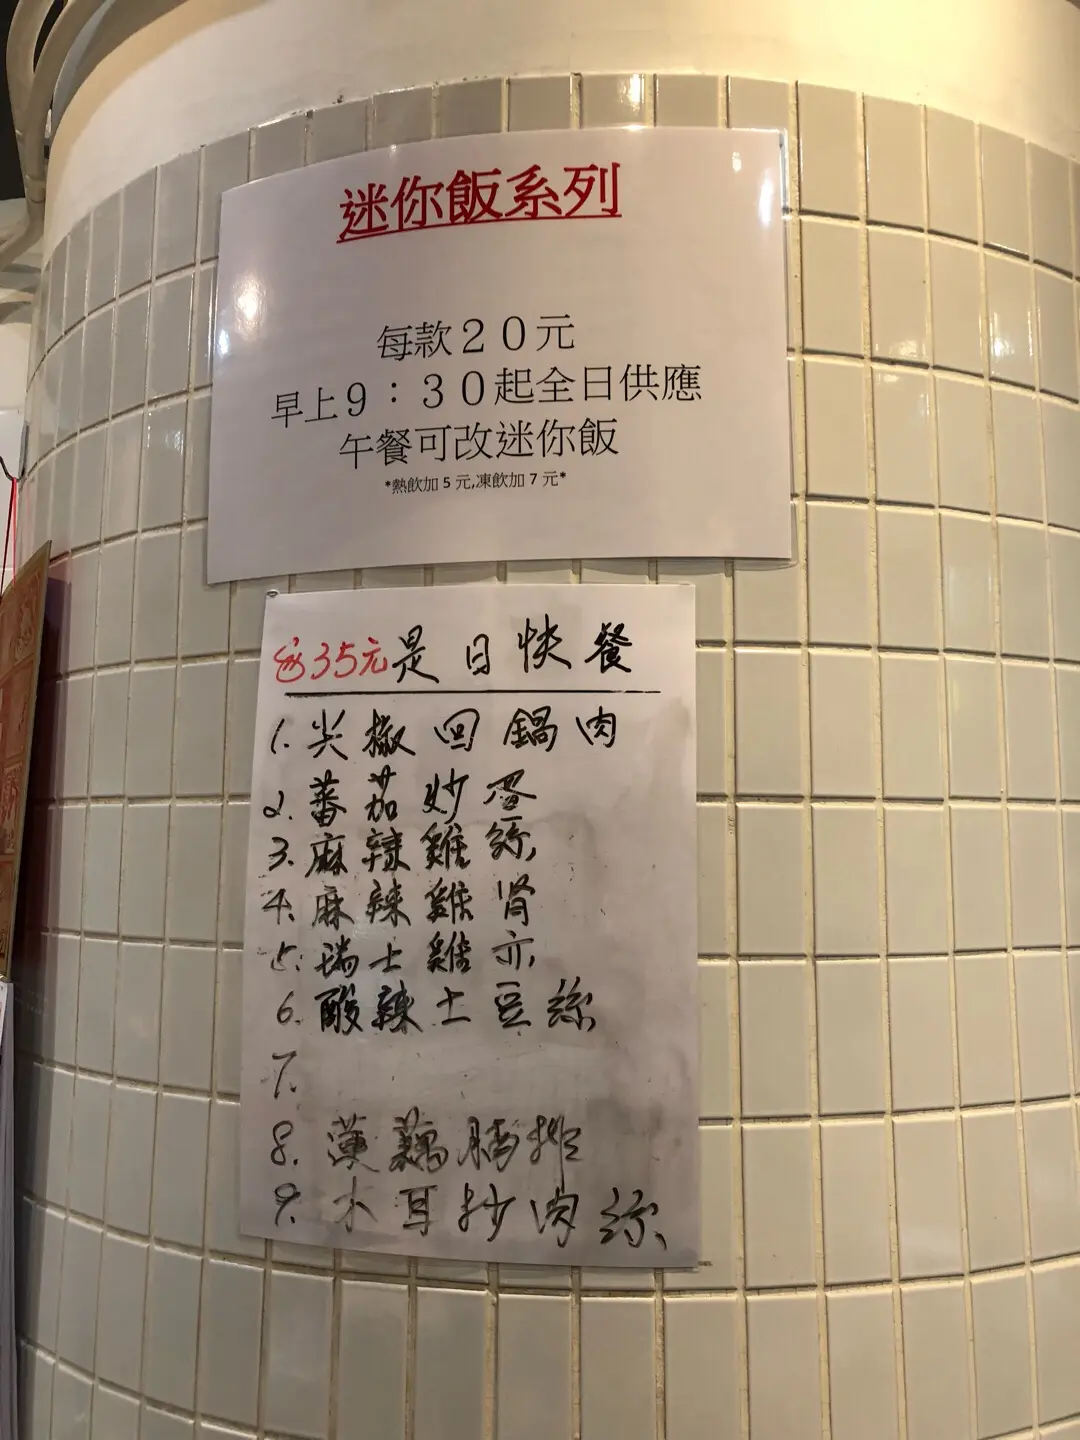 迷你飯系列
每款20元
早上9：30起全日供應
午餐可改迷你飯
*熱飲加 5 元,凍飲加 7 元*
35元是日快餐
1. 尖椒回鍋肉
2. 蕃茄炒蛋
3. 麻辣雞絲
4. 麻辣雞腎
5. 瑞士雞亦
6. 酸辣土豆絲
7.
8. 蓮藕腩排
9. 木耳炒肉絲